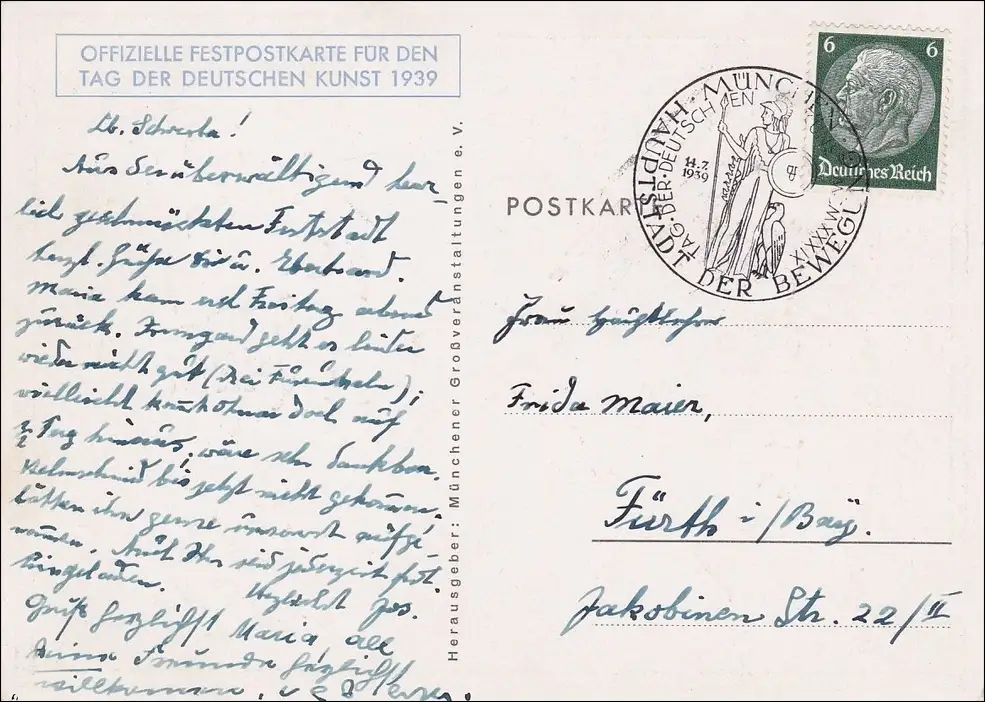 OFFIZIELLE FESTPOSTKARTE FÜR DEN
TAG DER DEUTSCHEN KUNST 1939
Lb. Schwester!
Aus der überwältigend herr
lich geschmückten Feststadt
herzl. Grüße Dir u.
Maria kam erst Freitag abend
zurück. Irmgard geht es leider
wieder nicht gut (drei Furunkeln);
vielleicht kommt doch auf
Tag hinaus, wäre sehr dankbar.
bis jetzt nicht gekommen.
hätten ihn gerne aufge-
nommen. Auch Ihr seid jederzeit frdl.
eingeladen. Herzlichst Jos.
Gruß herzlichst Maria all
Deine Freunde herzlichst
willkommen.
Herausgeber: Münchener Großveranstaltungen e. V.
POSTKARTE
MÜNCHEN HAUPTSTADT DER BEWEGUNG
TAG·DER·DEUTSCHEN
14.7.
1939
6 6
Deutsches Reich
Frau Hauptlehrer
Frida Maier,
Fürth i/Bay.
Jakobinen Str. 22/II